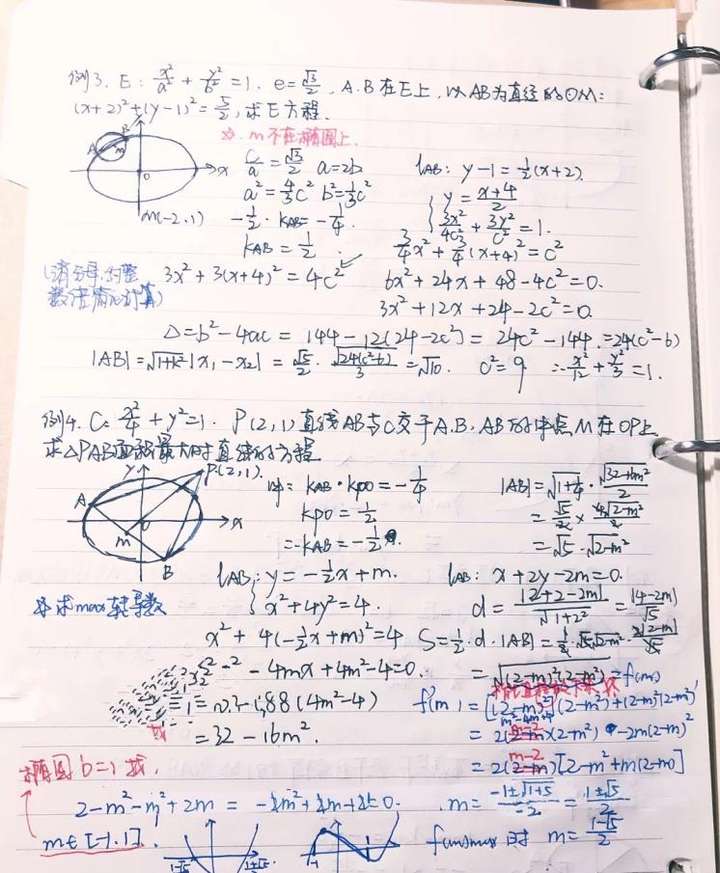 例3. E: x²/a² + y²/b² = 1. e = √3/2, A.B在E上, 以AB为直径的⊙M:
(x+2)²+(y-1)² = 5/2, 求E方程.
※. m不在椭圆上.
y A B x o
M(-2,1)
c/a = √3/2 a=2b
a² = 4/3c² b²=1/3c²
-1/2 · kAB = -1/4.
kAB = 1/2.
lAB: y-1 = 1/2(x+2).
{ y = (x+4)/2
3x²/4c² + 3y²/c² = 1.
3/4x² + 3/4(x+4)² = c²
3x²+3(x+4)² = 4c² ✓
6x²+24x+48-4c²=0.
3x²+12x+24-2c²=0.
Δ=b²-4ac = 144-12(24-2c²) = 24c²-144. =24(c²-6)
|AB|=√1+k²|x₁-x₂| = √5/2 · √24(c²-6)/3 = √10. c²=9 ∴x²/12+y²/3=1.
例4. C: x²/4 + y²=1. P(2,1) 直线AB与C交于A.B. AB的中点M在OP上
求△PAB面积最大时直线的方程
y P(2,1). A O x m B
kAB·kPO = -1/4
kPO = 1/2
∴kAB = -1/2.
|AB| = √1+1/4 · √32-16m²/2
= √5/2 × 4√2-m²/2
= √5·√2-m²
lAB: y = -1/2x+m.
{ x²+4y²=4.
※求max转导数
x²+4(-1/2x+m)²=4
lAB: x+2y-2m=0.
d = |2+2-2m|/√1+2² = |4-2m|/√5
S=1/2·d·|AB| = 1/2·√5·√2-m²·2|2-m|/√5
= √(2-m)²(2-m²) = f(m)
-4mx+4m²-4=0.
(4m²-4)
= 32-16m².
f'(m) = [(2-m)²]'(2-m²)+(2-m)²(2-m²)'
m²-4m+4
= 2(2-m)(2-m²) -2m(2-m)²
m-2
= 2(2-m)[2-m²+m(2-m)]
m-2
椭圆b=1 找.
2-m²-m²+2m = -2m²+2m+2=0.
m = -1±√1+5/-2 = 1±√5/2
m∈[-1,1].
1-√5 1+√5 -1 1
f(m)max时 m = 1-√5/2